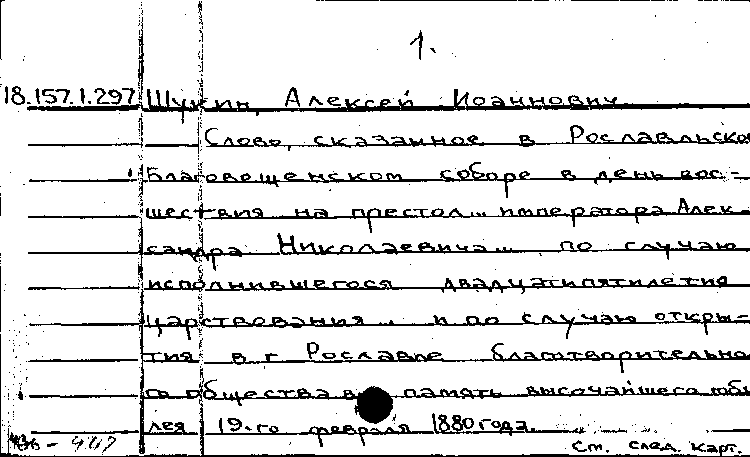 1.
18.157.1.297 Щукин, Алексей Иоаннович
Слово, сказанное в Рославльско
Благовещенском соборе в день вос=
шествия на престол... императора Алек
сандра Николаевича... по случаю
исполнившегося двадцатипятилетия
царствования... и по случаю откры=
тия в г Рославле благотворительно
го общества в память высочайшего юби
лея 19-го февраля 1880 года.
См. след. карт.